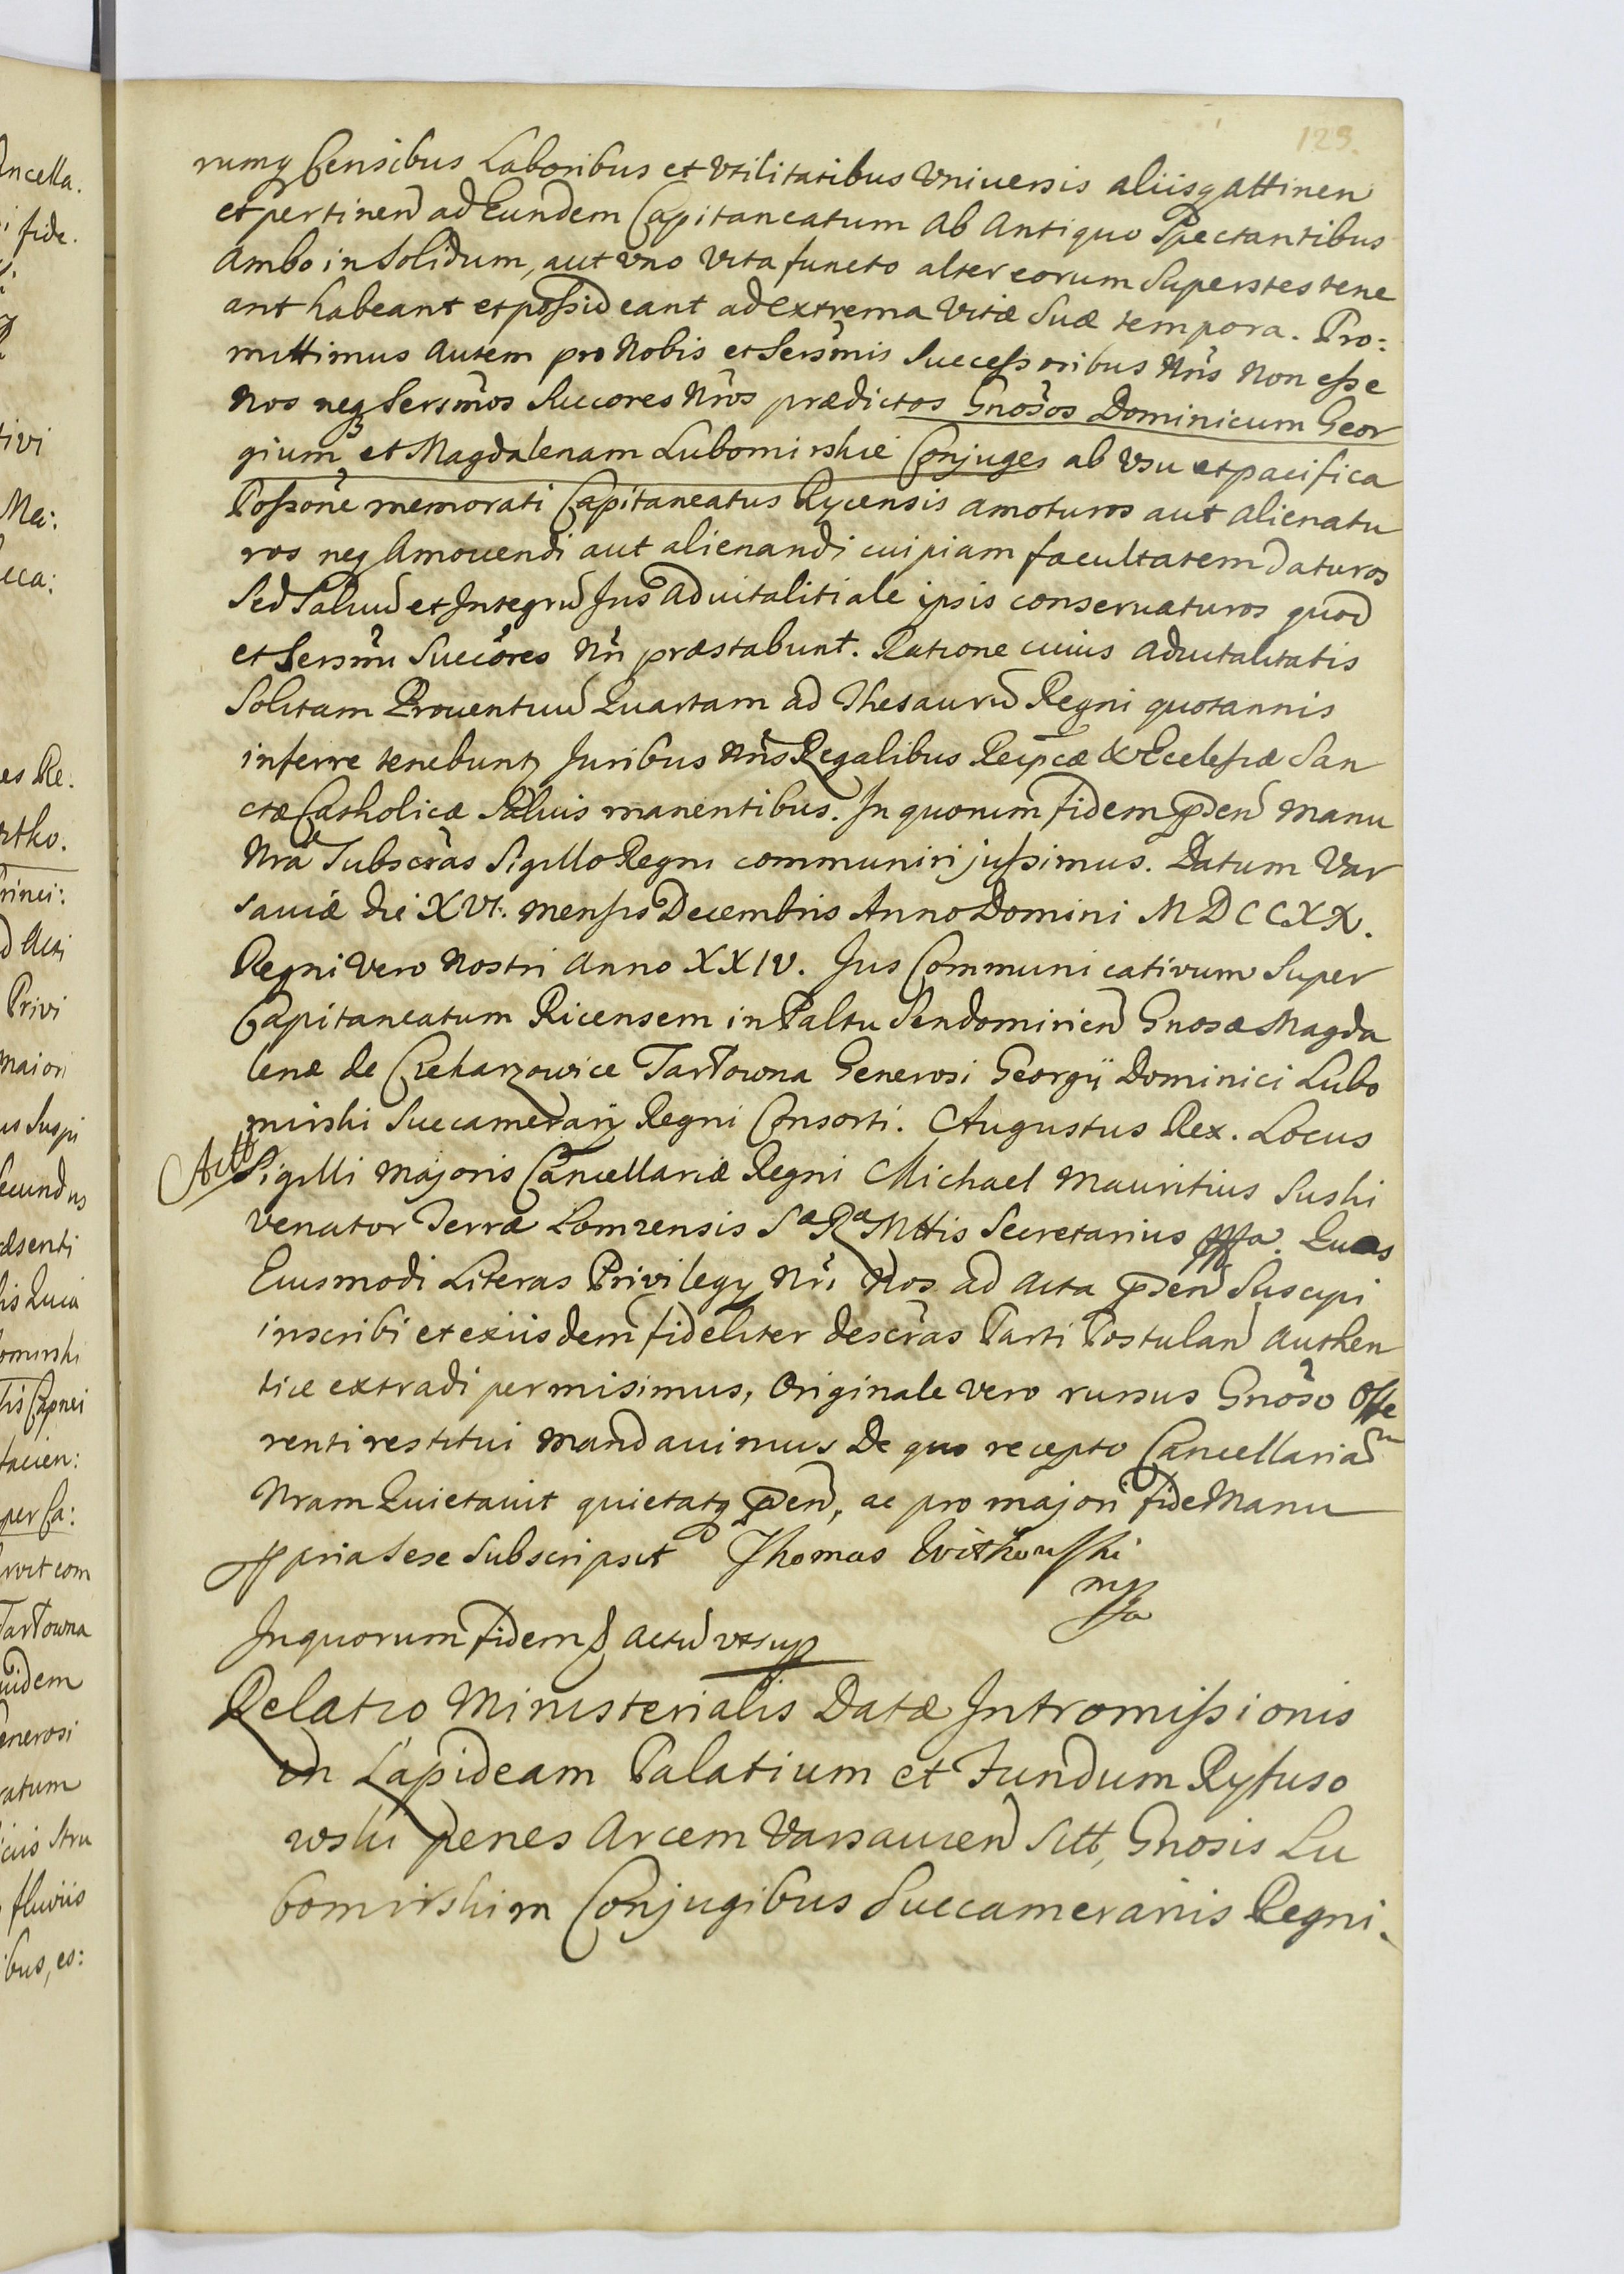 129.
rumq Censibus Laboribus et Vtilitatibus Vniuersis aliisq attinen
et pertinen ad Eundem Capitaneatum ab Antiquo Spectantibus
Ambo in Solidum, aut vno Vita functo alter eorum Superstes tene
ant habeant et possideant ad extrema Vitæ Suæ tempora. Pro:
mittimus Autem pro Nobis et Sersmis Successoribus Nris Non esse
Nos neq Sersmos Succores Nros prædictos Gnosos Dominicum Geor
gium et Magdalenam Lubomirskie Conjuges ab Vsu et pacifica
Possone memorati Capitaneatus Rycensis amoturos aut alienatu
ros neq Amouendi aut alienandi cuipiam facultatem daturos
Sed Saluu et Integru Jus Aduitalitiale ipsis conseruaturos quod
et Sersmi Succores Nri præstabunt. Ratione cuius aduitalitatis
Solitam Prouentuu Quartam ad Thesauru Regni quotannis
inferre tenebunt, Juribus Nris Regalibus Reipcæ & Ecclesiæ San
ctæ Catholicæ Saluis manentibus. In quorum fidem pśen manu
Nra Subscras Sigillo Regni communiri jussimus. Datum Var
sauiæ die XVI. mensis Decembris Anno Domini MDCCXX.
Regni Vero Nostri Anno XXIV. Jus Communicativum Super
Capitaneatum Ricensem in Paltu Sendomirien Gnosæ Magda
lenæ de Czekarzowice Tarłowna Generosi Georgii Dominici Lubo
mirski Succamerarij Regni Consorti. Augustus Rex. Locus
Sigilli Majoris Cancellariæ Regni Michael Mauritius Suski
Venator Terræ Lomzensis Sæ Ræ Mttis Secretarius mpa. Quas
Eiusmodi Literas Privilegy Nri Nos ad Acta pśen Suscipi
inscribi et exiisdem fideliter descras Parti Postulan Authen
tice extradi permisimus, Originale vero rursus Gnoso Offe
renti restitui mandauimus De quo recepto Cancellariam
Nram Quietauit quietatq pśen, ac pro majori fide Manu
ppria sese Subscripsit Thomas Witkowski
mpa
In quorum fidem & actu vt sup
Relatio Ministerialis Datæ Intromissionis
in Lapideam Palatium et Fundum Ryfuso
wski penes Arcem Varsauien Sitt, Gnosis Lu
bomirskim Conjugibus Succamerariis Regni.